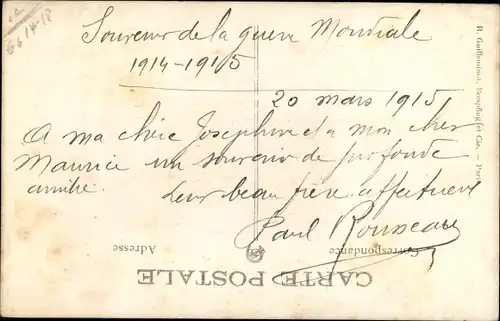 Souvenir de la guerre Mondiale
1914-1915
20 mars 1915
A ma chère Josephine et a mon cher
Maurice un souvenir de profonde
amitié.
Leur beau frère affectueux
Paul Rousseau
Correspondance
Adresse
CARTE POSTALE
R. Guilleminot, Bœspflug et Cie. — Paris